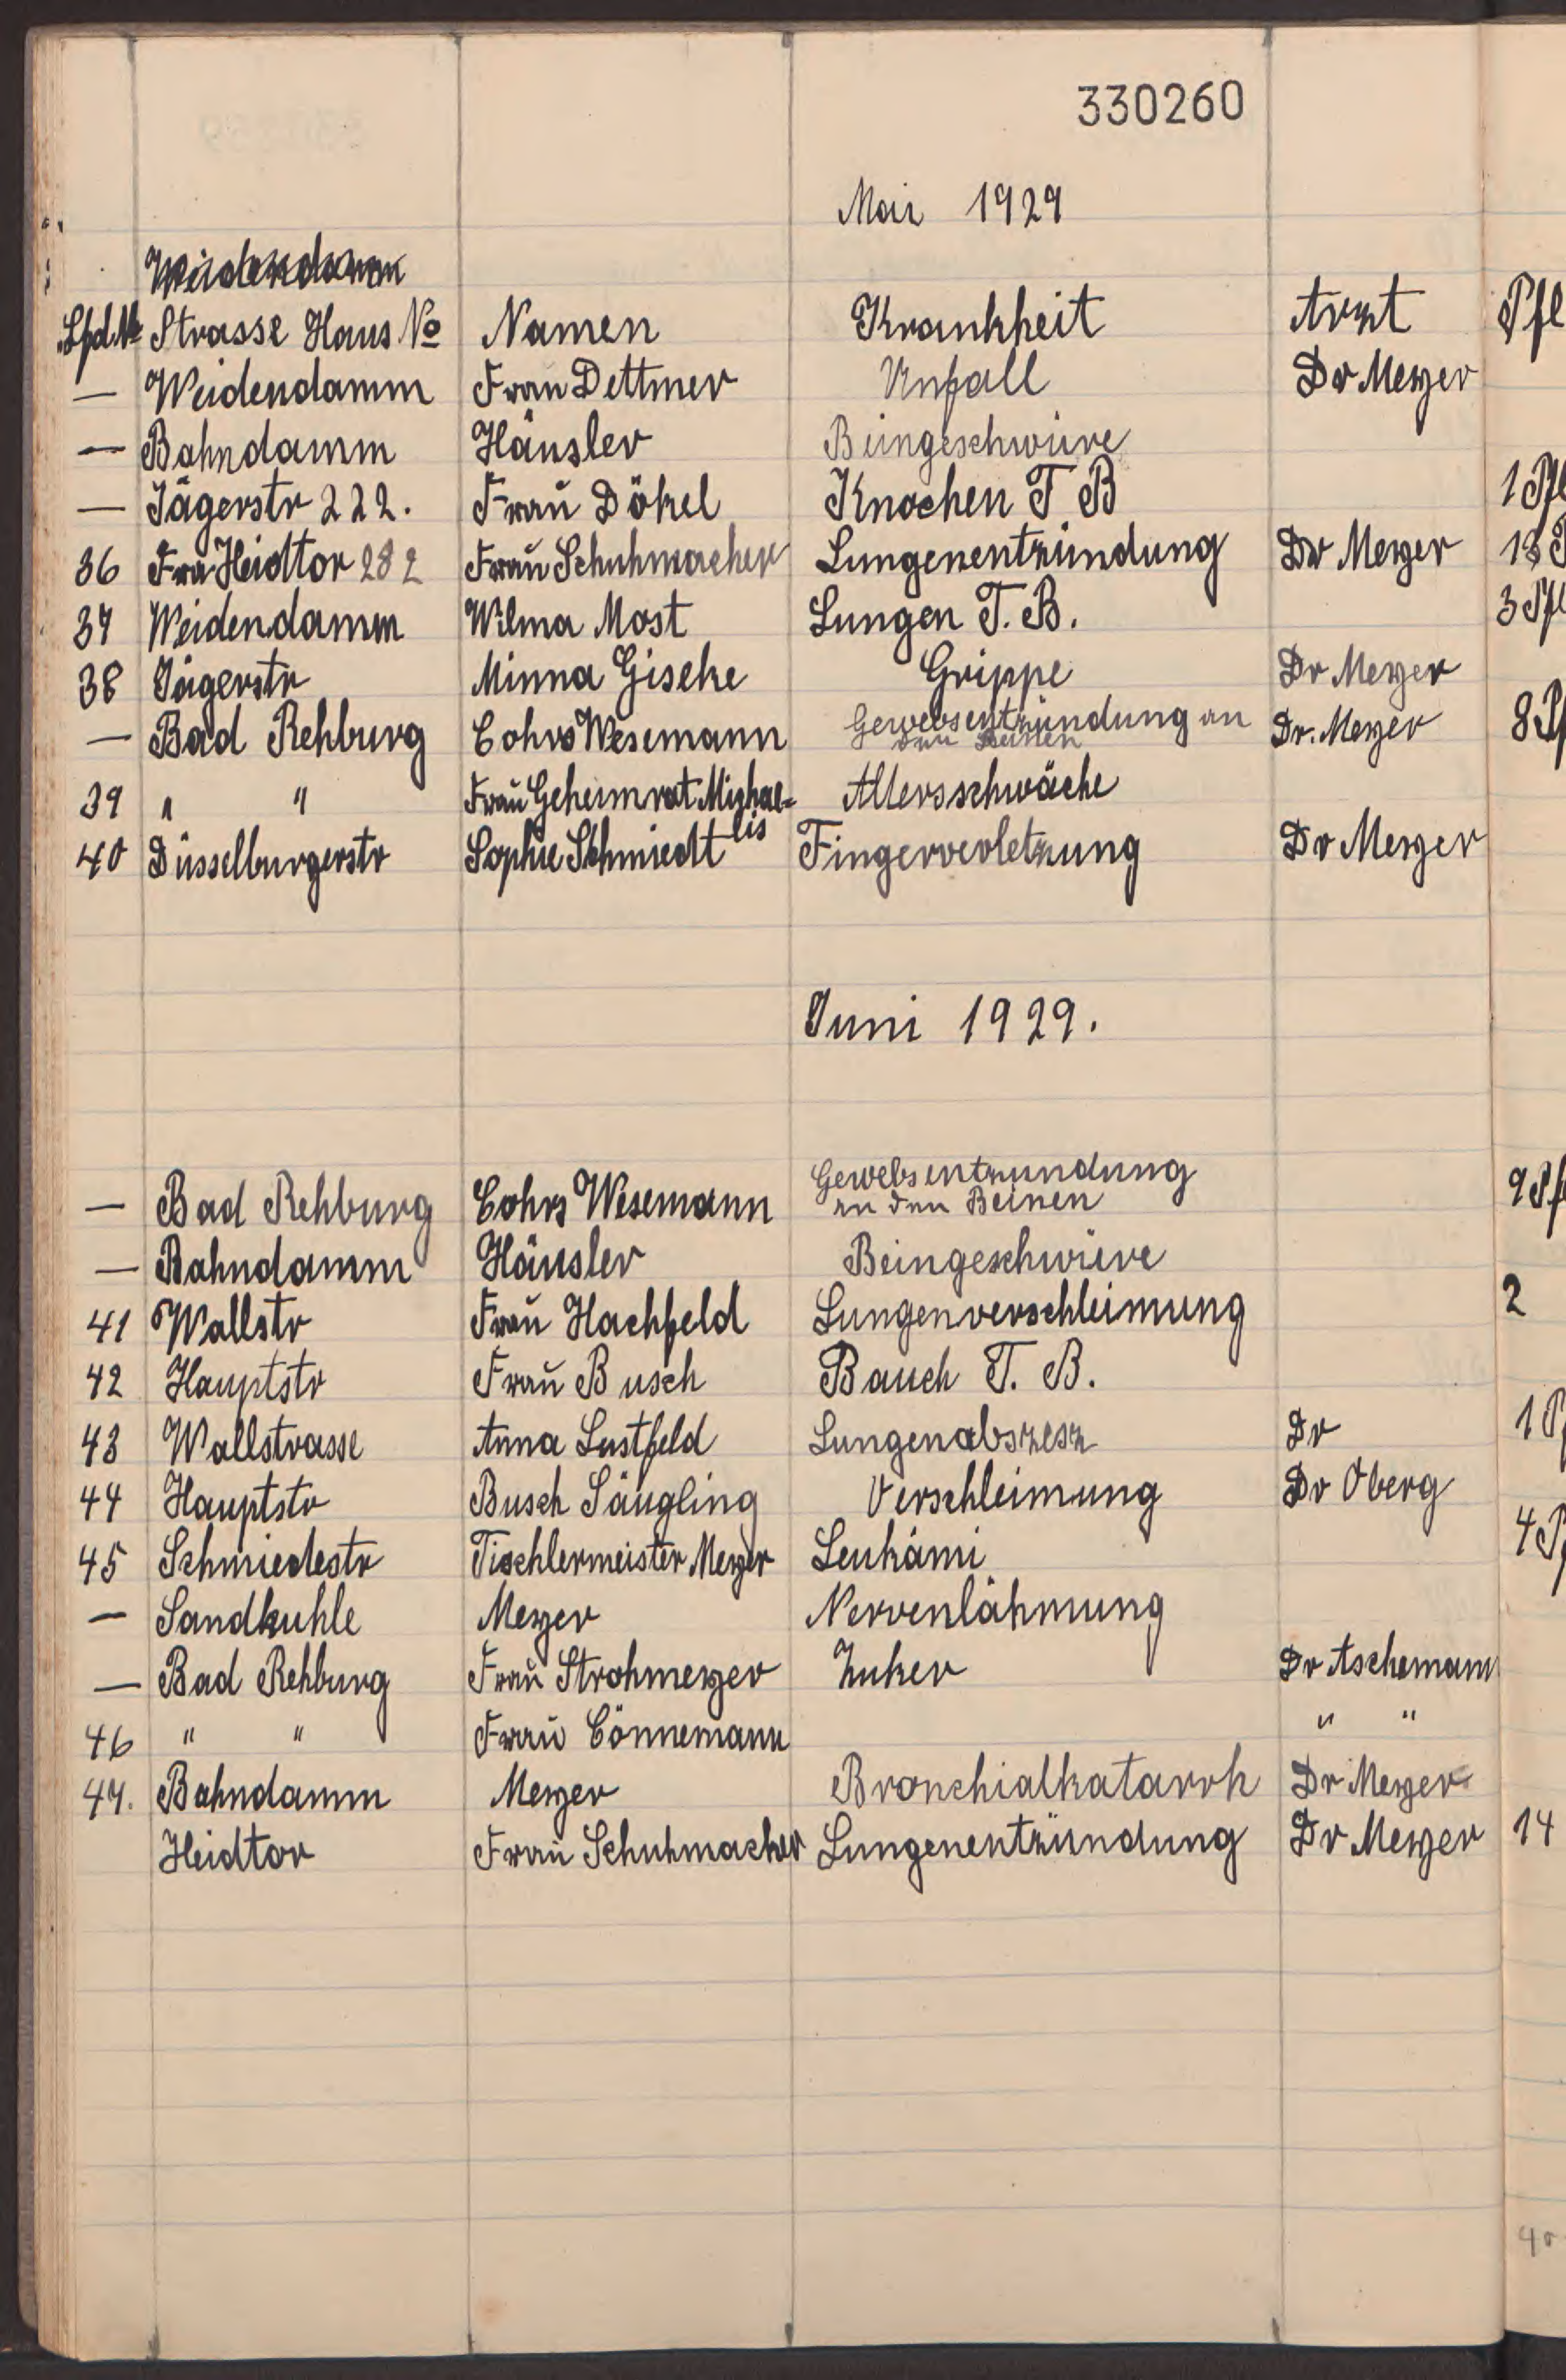 330260
Mai 1929
Weidendamm
Lfd.№ Strasse Haus № Namen Krankheit Arzt Pfl
— Weidendamm Frau Dettmer Unfall Dr Meyer
— Bahndamm Häusler Beingeschwüre
— Jägerstr 222. Frau Dökel Knochen T B 1 Pfl
36 Frau Heidtor 282 Frau Schuhmacher Lungenentzündung Dr Meyer 13
37 Weidendamm Wilma Most Lungen T.B. 3 Pfl
38 Jägerstr Minna Giseke Grippe Dr Meyer
— Bad Rehburg Cohrs Wesemann Gewebsentzündung an Dr. Meyer 8 Pf
den Beinen
39 " " Frau Geheimrat Michae= Altersschwäche
lis
40 Düsselburgerstr Sophie Schmiedt Fingerverletzung Dr Meyer
Juni 1929.
— Bad Rehburg Cohrs Wesemann Gewebsentzündung 9 Pf
an den Beinen
— Bahndamm Häusler Beingeschwüre
41 Wallstr Frau Hachfeld Lungenverschleimung 2
42 Hauptstr Frau Busch Bauch T. B.
43 Wallstrasse Anna Lustfeld Lungenabszesz Dr 1 P
44 Hauptstr Busch Säugling Verschleimung Dr Oberg
45 Schmiedestr Tischlermeister Meyer Leukämi 4 P
— Sandkuhle Meyer Nervenlähmung
— Bad Rehburg Frau Strohmeyer Zuker Dr Aschemann
46 " " Frau Cönnemann " "
47. Bahndamm Meyer Bronchialkatarrh Dr Meyer
Heidtor Frau Schuhmacher Lungenentzündung Dr Meyer 14
40